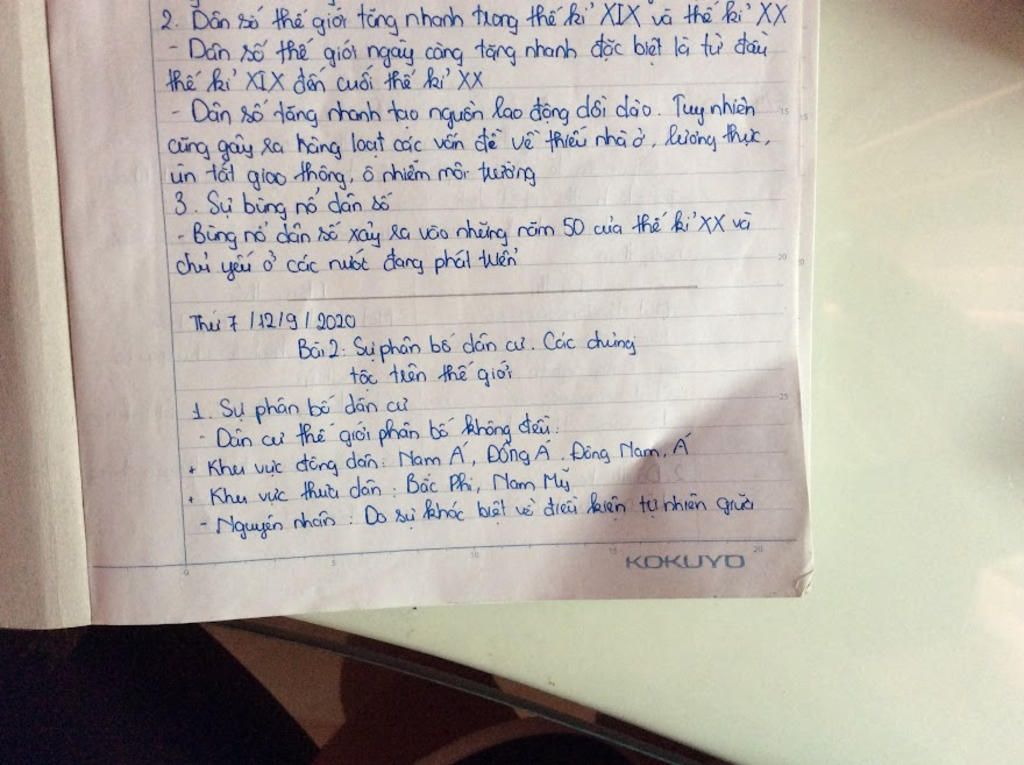 2. Dân số thế giới tăng nhanh trong thế kỉ XIX và thế kỉ XX
- Dân số thế giới ngày càng tăng nhanh đặc biệt là từ đầu
thế kỉ XIX đến cuối thế kỉ XX
- Dân số tăng nhanh tạo nguồn lao động dồi dào. Tuy nhiên
cũng gây ra hàng loạt các vấn đề về thiếu nhà ở, lương thực,
ùn tắt giao thông, ô nhiễm môi trường
3. Sự bùng nổ dân số
- Bùng nổ dân số xảy ra vào những năm 50 của thế kỉ XX và
chủ yếu ở các nước đang phát triển
Thứ 7 / 12 / 9 / 2020
Bài 2: Sự phân bố dân cư. Các chủng
tộc trên thế giới
1. Sự phân bố dân cư
- Dân cư thế giới phân bố không đều:
+ Khu vực đông dân: Nam Á, Đông Á. Đông Nam, Á
+ Khu vực thưa dân: Bắc Phi, Nam Mỹ
- Nguyên nhân: Do sự khác biệt về điều kiện tự nhiên giữa
KOKUYO